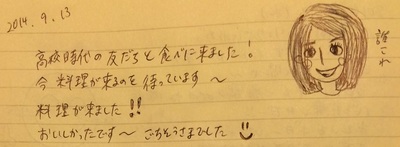 2014.9.13
高校時代の友だちと食べに来ました!
今料理が来るのを待っています〜
料理が来ました!!
おいしかったです〜 ごちそうさまでした
誰これ